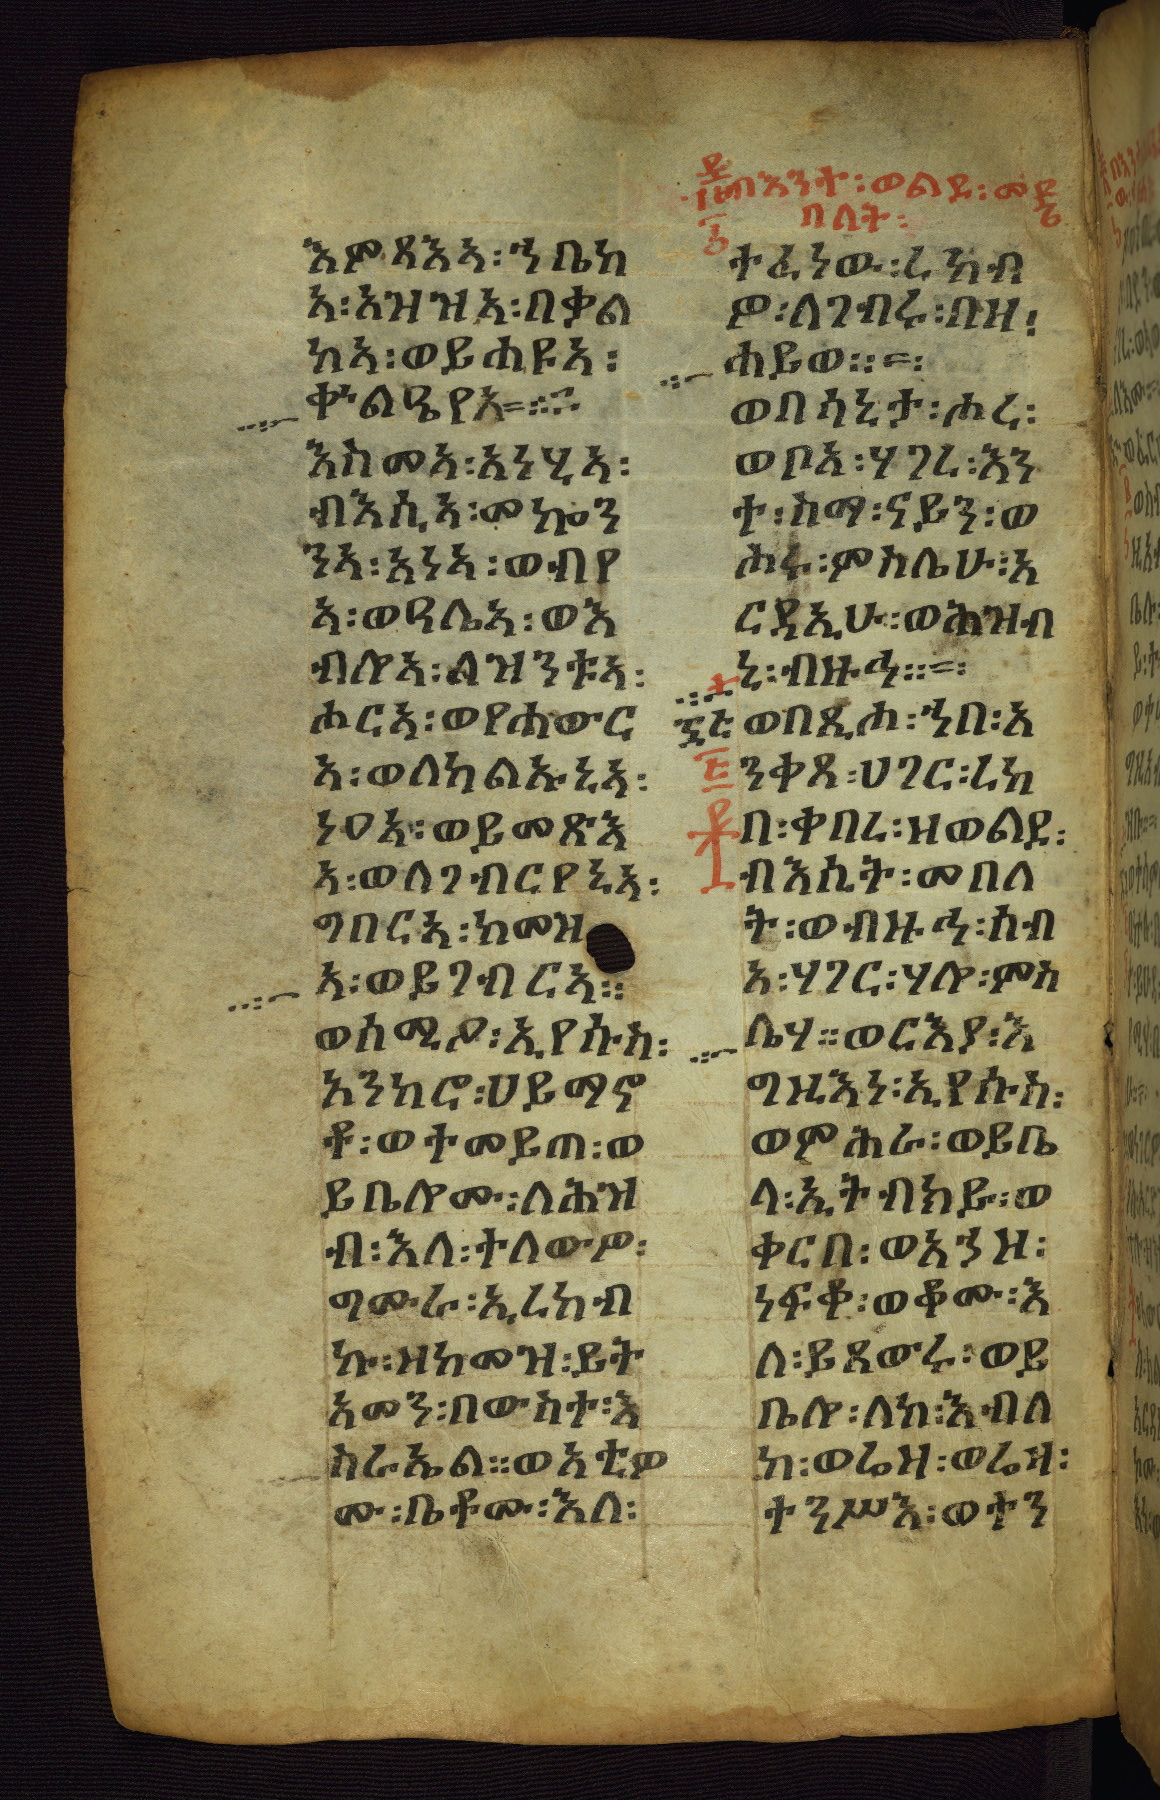 በእንተ፡ወልደ፡መ
በለት፡
እምጻእኣ፡ኀቤከ
ኣ፡አዝዝኣ፡በቃል
ከኣ፡ወይሐዩኣ፡
ቍልዔየአ።
እስመኣ፡አነሂኣ፡
ብእሲኣ፡መኰን
ንኣ፡አነኣ፡ወብየ
ኣ፡ወዓሌኣ፡ወእ
ብሎኣ፡ለዝንቱኣ፡
ሖርኣ፡ወየሐውር
ኣ፡ወለካልኡኒኣ፡
ነዓኣ፡ወይመጽእ
ኣ፡ወለገብርየኒኣ፡
ግበርኣ፡ከመዝ
ኣ፡ወይገብርኣ።
ወሰሚዖ፡ኢየሱስ፡
አንከሮ፡ሀይማኖ
ቶ፡ወተመይጠ፡ወ
ይቤሎሙ፡ለሕዝ
ብ፡እለ፡ተለውዎ፡
ግሙራ፡ኢረከብ
ኩ፡ዘከመዝ፡ይት
አመን፡በውስተ፡እ
ስራኤል።ወአቲዎ
ሙ፡ቤቶሙ፡እለ፡
ተፈነው፡ረከብ
ዎ፡ለገብሩ፡በዘ፡
ሐይወ።
ወበሳኒታ፡ሖረ፡
ወቦአ፡ሃገረ፡እን
ተ፡ስማ፡ናይን፡ወ
ሖሩ፡ምስሌሁ፡አ
ርዳኢሁ፡ወሕዝብ
ኒ፡ብዙኅ።
ወበጺሖ፡ኀበ፡አ
ንቀጸ፡ሀገር፡ረከ
በ፡ቀበረ፡ዘወልደ፡
ብእሲት፡መበለ
ት፡ወብዙኅ፡ሰብ
አ፡ሃገር፡ሃሎ፡ምስ
ሌሃ።ወርእያ፡እ
ግዚእነ፡ኢየሱስ፡
ወምሕራ፡ወይቤ
ላ፡ኢትብክይ፡ወ
ቀርበ፡ወአኀዘ፡
ነፍቆ፡ወቆሙ፡እ
ለ፡ይጸውሩ፡ወይ
ቤሎ፡ለከ፡እብለ
ከ፡ወሬዛ፡ወሬዛ፡
ተንሥእ፡ወተን